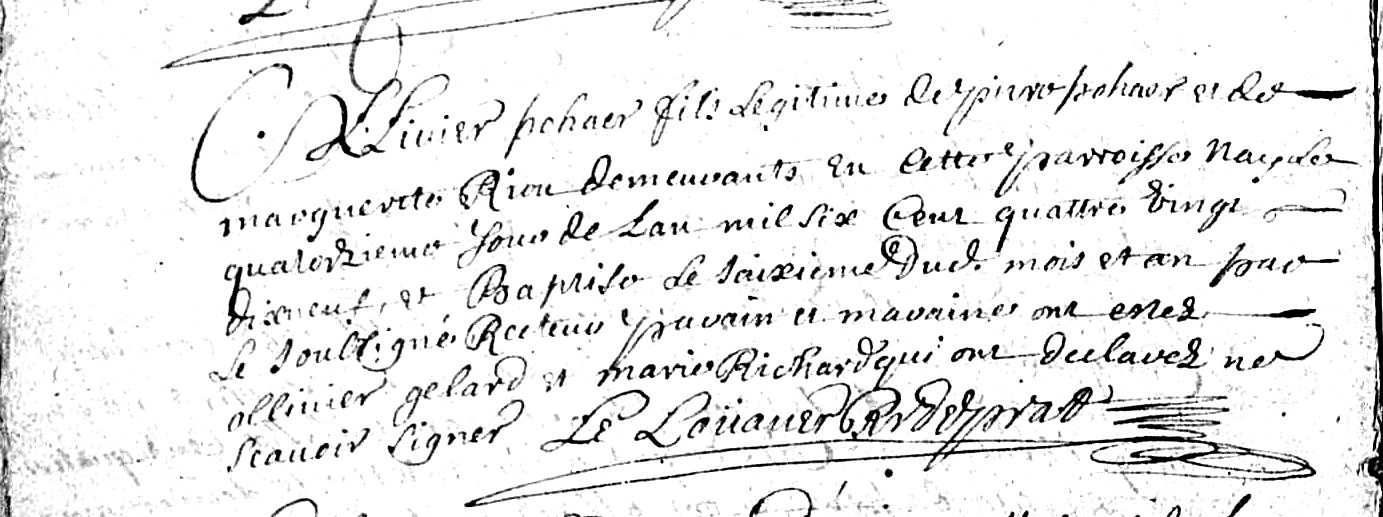 Ollivier pohaer fils Legitime de pierre pohaer et de
marguerite Riou demeurants en Cette parroisse Nay Le
quatorzieme Jour de Lan mil six Cent quattre vingt
dixneuf, et Baptise Le saixieme Dud. mois et an par
Le soubsigné Recteur parain et maraine ont estez
ollivier gelard et marie Richard qui ont declarez ne
scavoir signer Le Loüarer R de prat